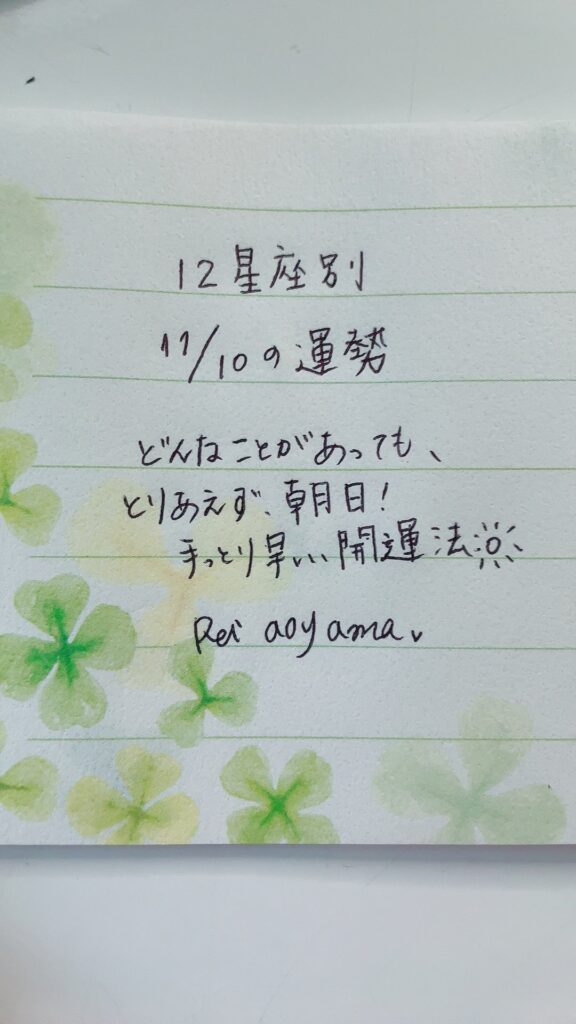 12星座別
11/10の運勢
どんなことがあっても、
とりあえず、朝日!
手っとり早い開運法
Rei aoyama